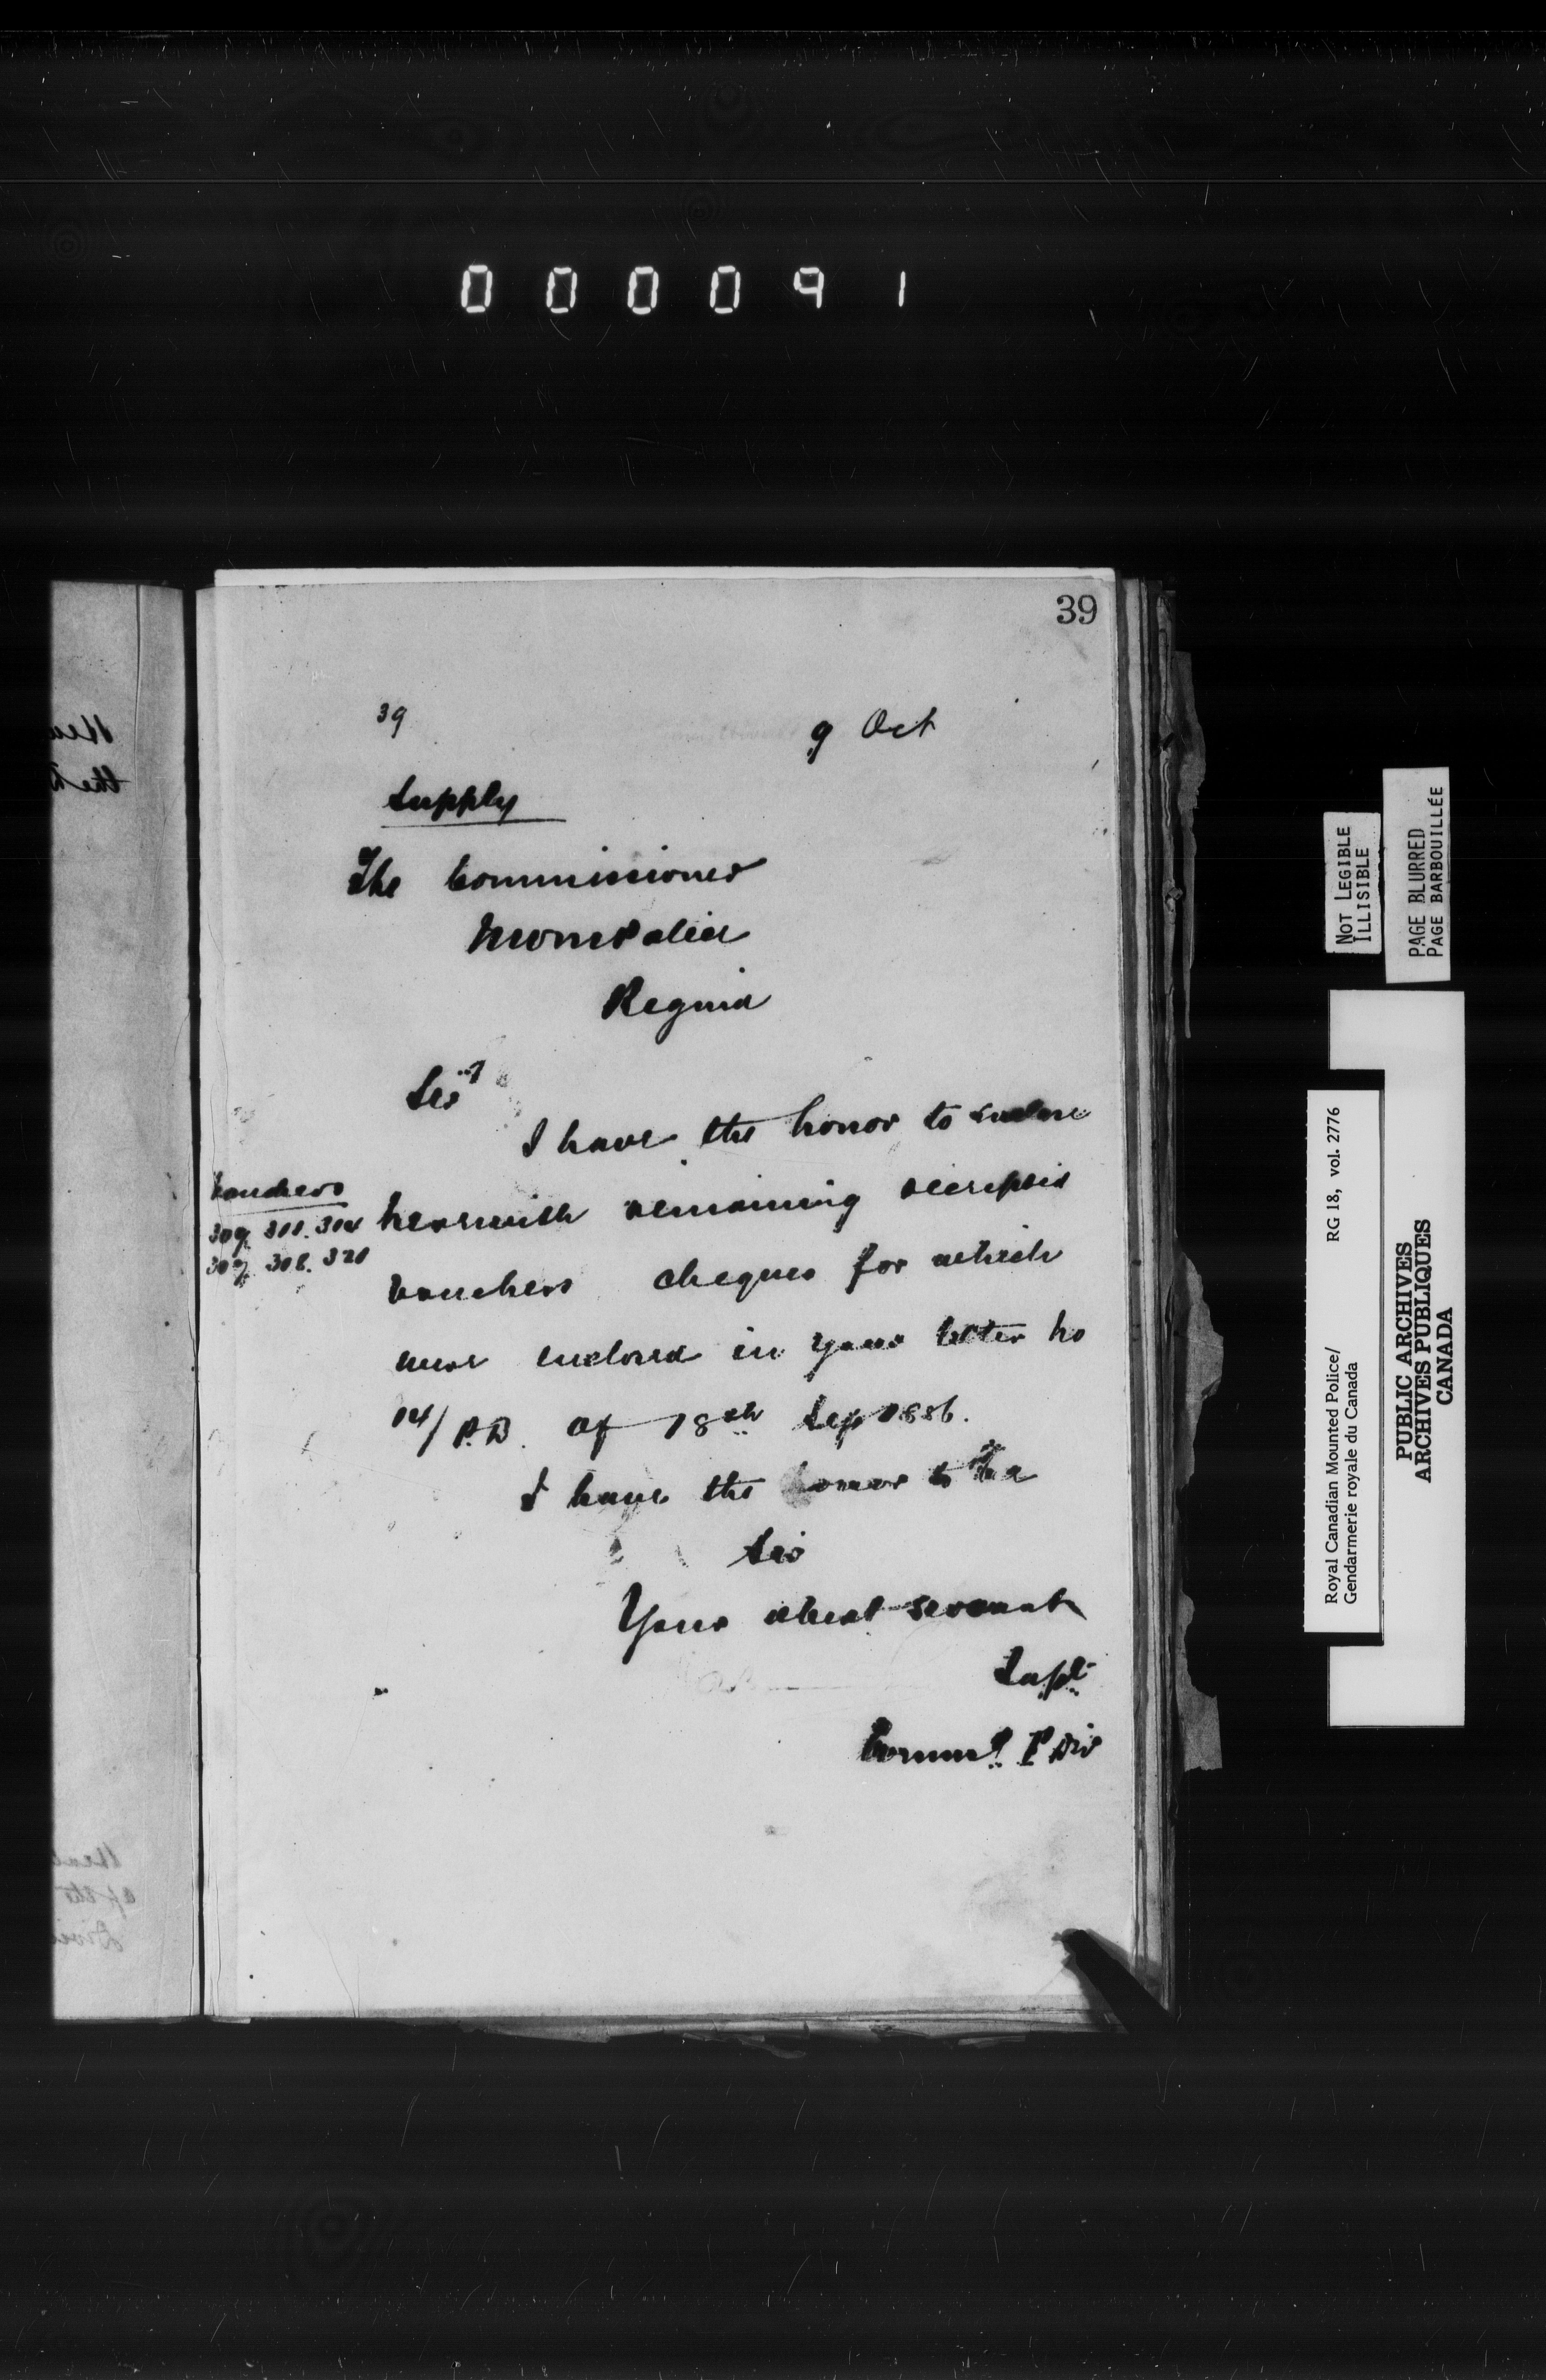 000091
39
39
9 Oct
Supply
The Commissioner
NWM Police
Regina
Sir,
I have the honor to enclose
Vouchers
309. 311. 304
308. 320
herewith remaining receipted
vouchers cheques for which
were enclosed in your letter No
14/P.B. of 18th Sep 1886.
I have the honor to be
Sir
Your obedt servant
Supt
Commd F Div
NOT LEGIBLE
ILLISIBLE
PAGE BLURRED
PAGE BARBOUILLÉE
Royal Canadian Mounted Police/ RG 18, vol. 2776
Gendarmerie royale du Canada
PUBLIC ARCHIVES
ARCHIVES PUBLIQUES
CANADA